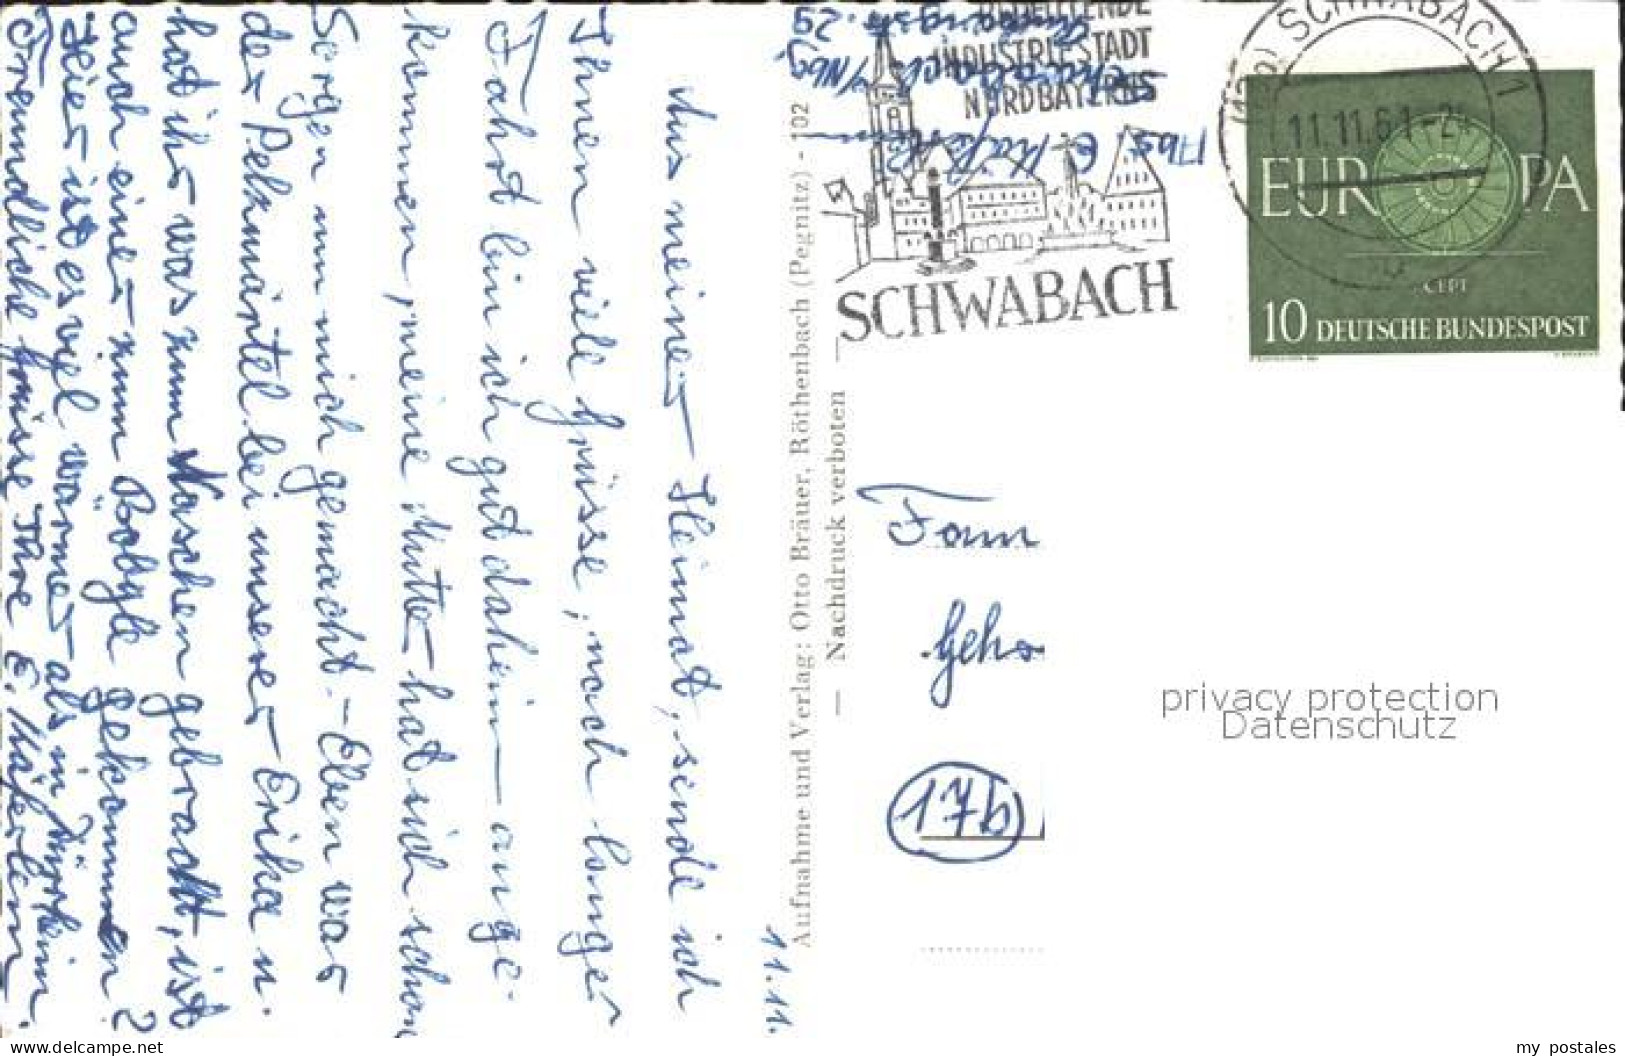 11.11.
Aus meiner Heimat, sende ich
Ihnen viele Grüsse, nach langer
Fahrt bin ich gut daheim ange-
kommen, meine Mutter hat sich schon
Sorgen um mich gemacht. – Eben war
der Pelzmärtel bei unserer Erika u.
hat ihr was zum Naschen gebracht, ist
auch einer zum gekommen?
Hier ist es viel wärmer als in
Freundliche Grüsse Ihre E. Käferlein.
Aufnahme und Verlag: Otto Bräuer, Röthenbach (Pegnitz) - 102
— Nachdruck verboten —
Abs. E. Käferlein
Schwabach /Nbg.
29
BEDEUTENDE
INDUSTRIESTADT
NORDBAYERNS
SCHWABACH
SCHWABACH 1
11.11.61-24
EUROPA
CEPT
10 DEUTSCHE BUNDESPOST
Fam
Geho
privacy protection
Datenschutz
www.delcampe.net
my_postales